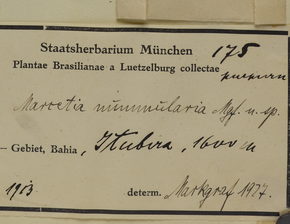 Staatsherbarium München 175
Plantae Brasilianae a Luetzelburg collectae
Marcetia nummularia Mgf. n. sp.
– Gebiet, Bahia, Itubira, 1600 m
1913 determ. Markgraf 1927.